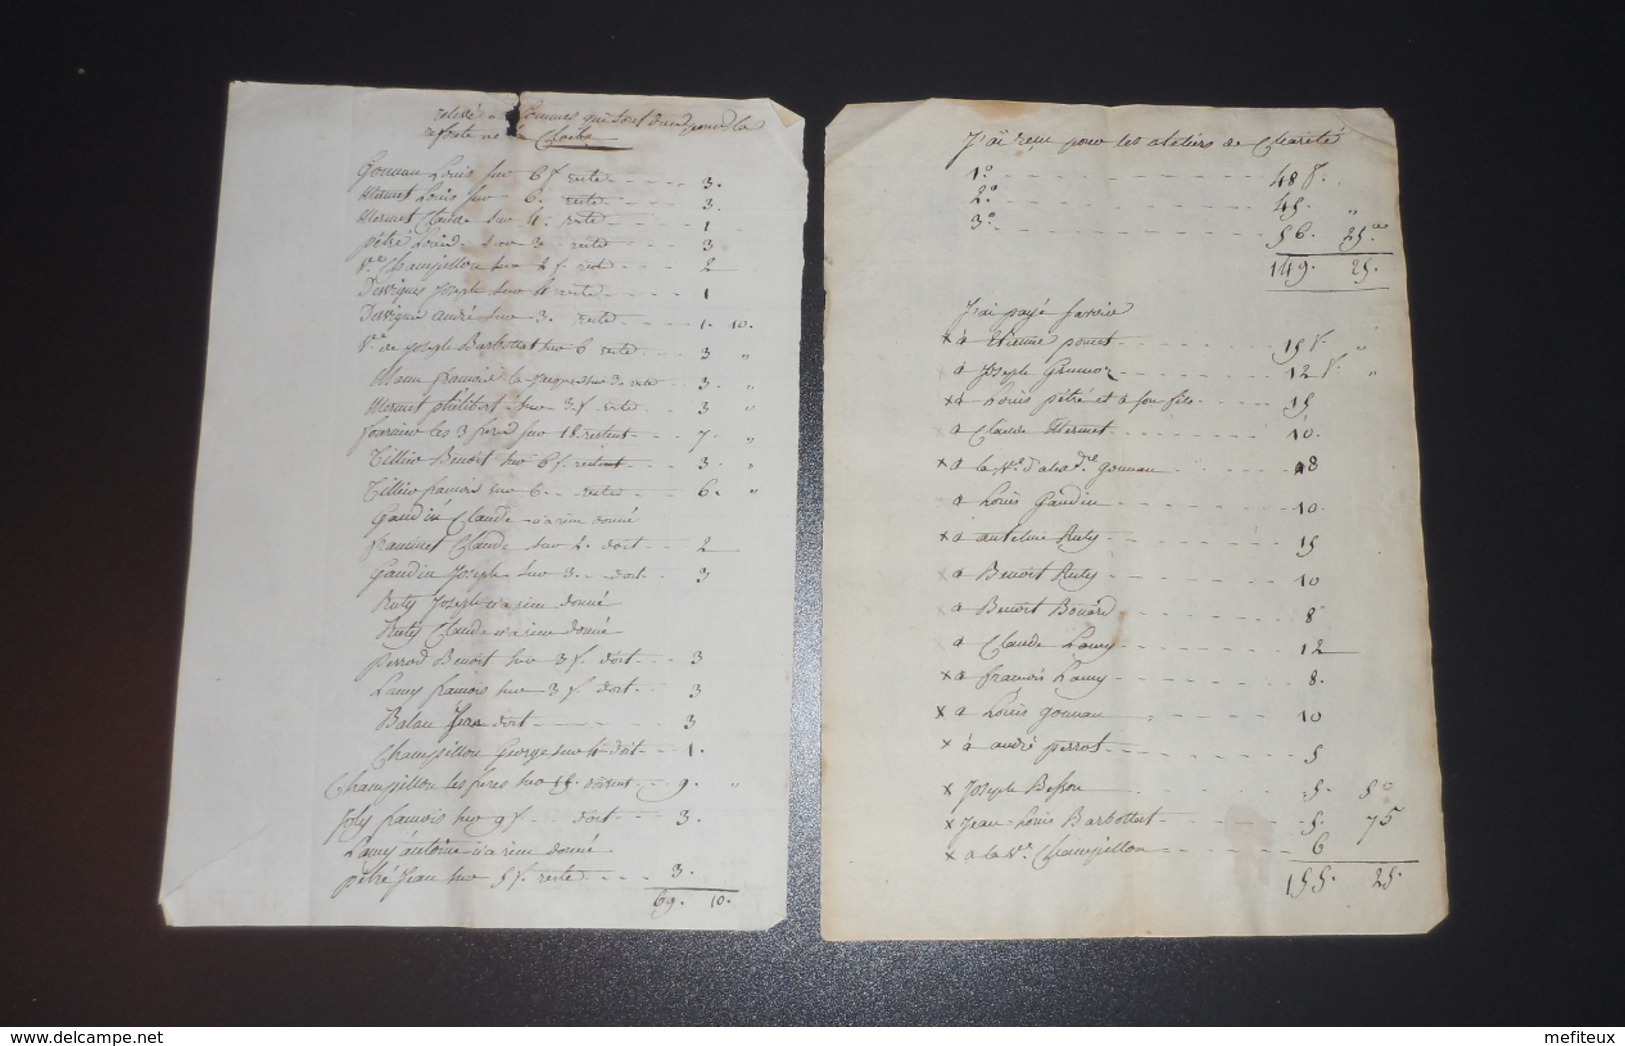 relevé des sommes qui sont dues pour la
refonte de la Cloche
Gonnau Louis sur 6 f reste 3.
Mermet Louis sur 6. reste 3.
Mermet Claude sur 4. reste 1
pétré Louis sur 3. reste 3
Ve. Champillon sur 2 f. reste 2
Dervigne Joseph sur 4 reste 1
Dervigne andré sur 3. reste 1. 10.
Ve. de joseph Barbottat sur 6 reste 3 "
Mann francois sur 3 reste 3. "
Mermet philibert sur 3 f reste 3 "
fournier les 3 freres sur 18. restent 7. "
Tillier Benoit sur 6 f. restent 3. "
Tillier francois sur 6. reste 6. "
Gaudin Claude n'a rien donné
Claude sur 2. doit 2
Gaudin Joseph sur 3. doit 3
Ruty Joseph n'a rien donné
Ruty Claude n'a rien donné
perrod Benoit sur 3 f. doit 3
Lamy francois sur 3 f. doit 3
Balau Jean doit 3
Champillon George sur 4 doit 1.
Champillon les freres sur 18. doivent 9. "
Joly francois sur 9 f. doit 3.
Lamy antoine n'a rien donné
pétré Jean sur 5 f. reste 3.
69. 10.
J'ai reçu pour les ateliers de Charité
1.° 48 f.
2.° 45. "
3.° 56. 25.ce
149. 25.
J'ai payé savoir
x à Etienne poncet 15 f. "
à Joseph 12 f. "
x à Louis pétré et à son fils 15
à Claude Mermet 10.
x a la Ve. d'alexdre gonnau 8
a Louis Gaudin 10.
x a antelme Ruty 15
x a Benoit Ruty 10
x a Benoit Bouard 8
a Claude Lamy 12
x a francois Lamy 8.
x a Louis gonnau 10
x à andré perrot 5
x Joseph Besson 5. 50
x Jean-Louis Barbottat 5. 75
x a la Ve. Champillon 6
155. 25.
delcampe.net
mefiteux